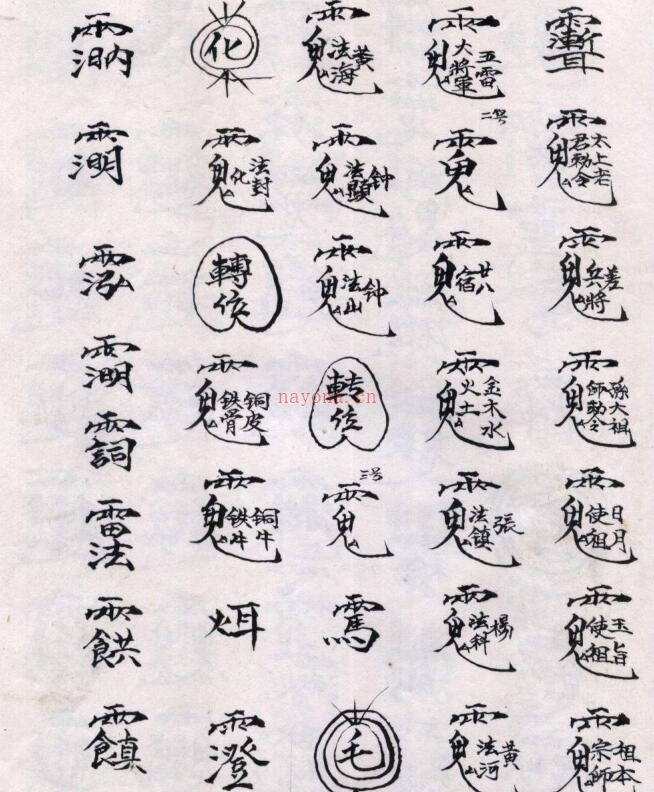 雨漸耳
雨鬼 太上老君勅令
雨鬼 差兵將
雨鬼 孫大祖師勅令
雨鬼 日月使祖
雨鬼 玉旨使祖
雨鬼 祖本宗師
雨鬼 五雷大將軍
二号 雨鬼
雨鬼 廿八宿
雨鬼 金木水火土
雨鬼 張法鎮
雨鬼 楊法科
雨鬼 黃法河
雨鬼 黃法海
雨鬼 钟法顕
雨鬼 钟法山
转位
三号 雨鬼
雨馬
毛
化
雨鬼 法封化
轉位
雨鬼 銅皮鉄骨
雨鬼 铜牛鉄牛
火耳
雨澄
雨泓
雨詞
雷法
nayona.cn